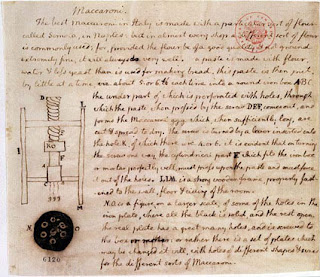 Maccaroni.
The best maccaroni in Italy is made with a particular sort of flour
called Semola, in Naples: but in almost every shop a different sort of flour
is commonly used; for, provided the flour be of a good quality, & not ground
extremely fine, it will always do very well. a paste is made with flour,
water & less yeast than is used for making bread. this paste is then put,
by little at a time, viz. about 5. or 6. lb each time into a round iron box ABC.
the under part of which is perforated with holes, through
which the paste, when pressed by the screw DEF, comes out, and
forms the Maccaroni ggg. which, when sufficiently long, are
cut & spread to dry. the screw is turned by a lever inserted into
the hole K. of which there are 4. or 6. it is evident that on turning
the screw one way, the cylindrical part F. which fits the iron box
or mortar perfectly well, must press upon the paste and must force
it out of the holes. LLM. is a strong wooden frame, properly fast-
ened to the wall, floor & cieling of the room.
N.O. is a figure, on a larger scale, of some of the holes in the
iron plate, where all the black is solid, and the rest open.
the real plate has a great many holes, and is screwed to
the box or mortar: or rather there is a set of plates which
may be changed at will, with holes of different shapes & sizes
for the different sorts of Maccaroni.
D
K
F
ggg
M
N
6126